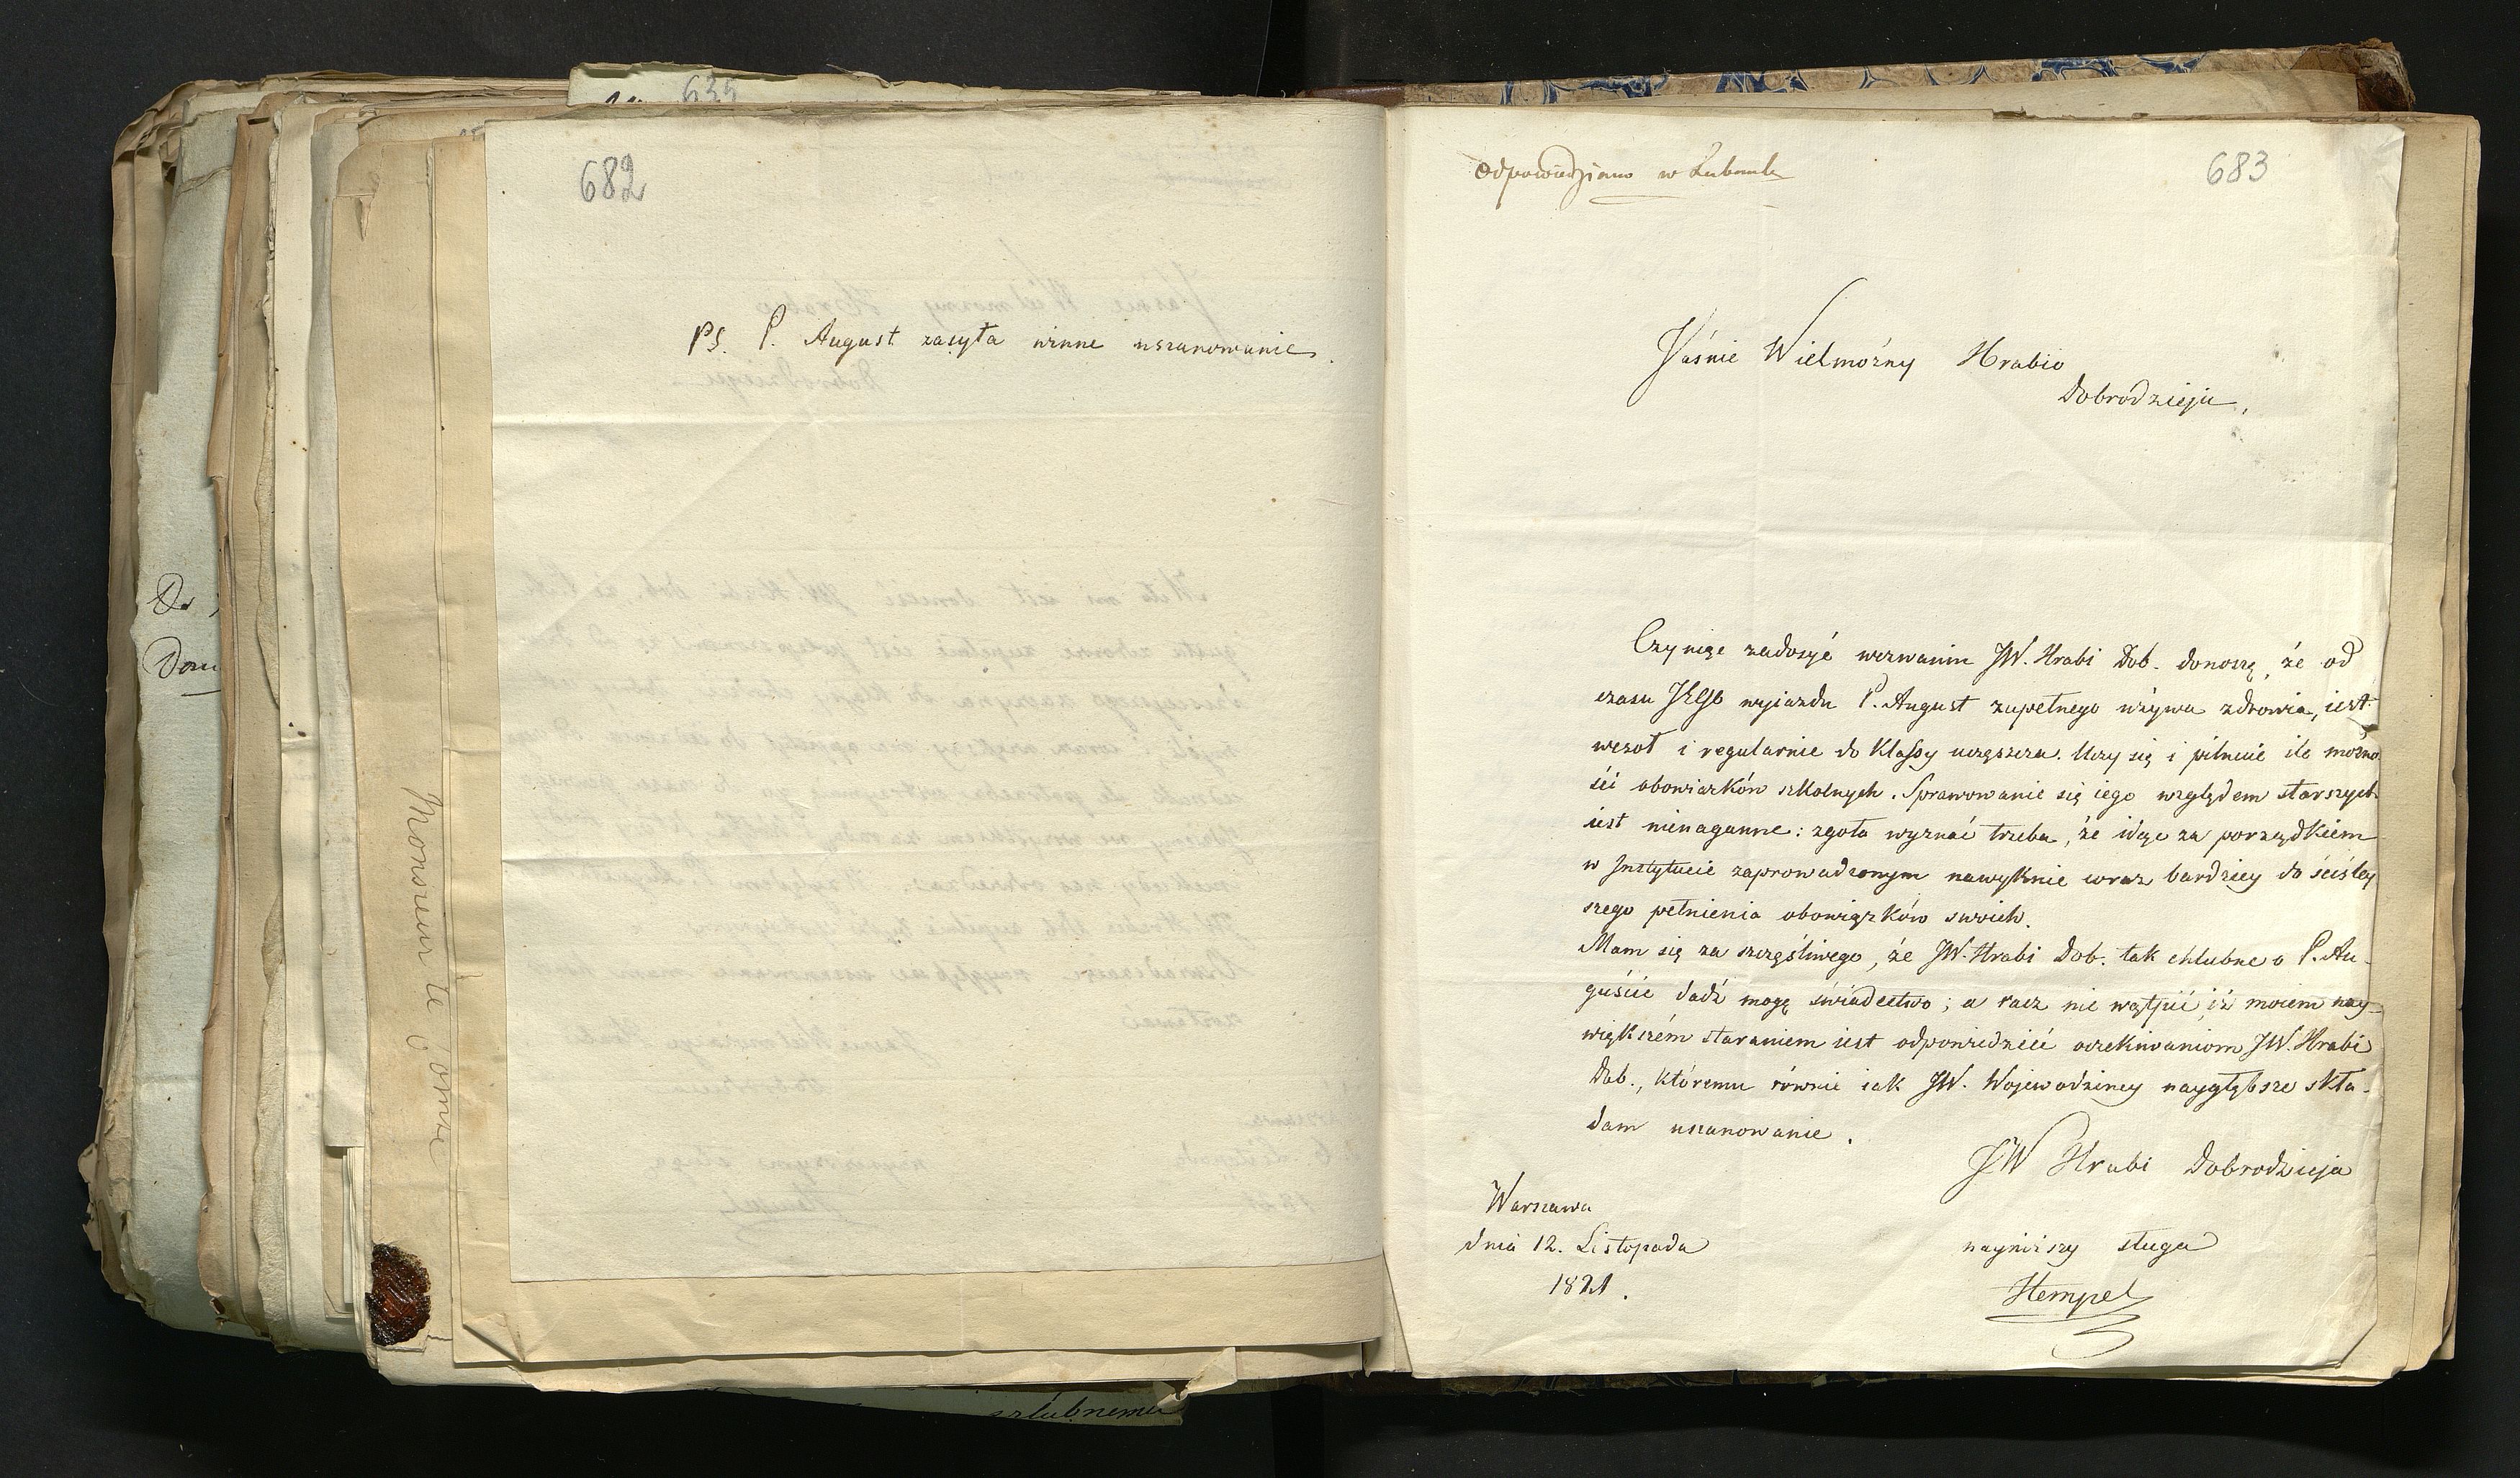 635
682
Ps. P. August zasyła winne uszanowanie.
Do
Dom
Monsieur le Comte
szlubnemu
odpowiedziano w
683
Jaśnie Wielmożny Hrabio
Dobrodzieju,
Czyniąc zadosyć wezwaniu JW. Hrabi Dob. donoszę, że od
czasu JEGO wyiazdu P. August zupełnego używa zdrowia, iest
wesoł i regularnie do Klassy uczęszcza. Uczy się i pilnuie ile możno
ści obowiązków szkolnych. Sprawowanie się iego względem starszych
iest nienaganne: zgoła wyznać trzeba, że idąc za porządkiem
w Instytucie zaprowadzonym nawyknie coraz bardziey do ściśley
szego pełnienia obowiązków swoich.
Mam się za szczęśliwego, że JW. Hrabi Dob. tak chlubne o P. Au-
guście dadź mogę świadectwo; a racz nie wątpić, iż moiem nay-
większém staraniem iest odpowiedzieć oczekiwaniom JW. Hrabi
Dob., któremu równie iak JW. Wojewodziney naygłębsze skła-
dam uszanowanie.
JW Hrabi Dobrodzieja
Warszawa
dnia 12. Listopada
1821.
nayniższy sługa
Hempel